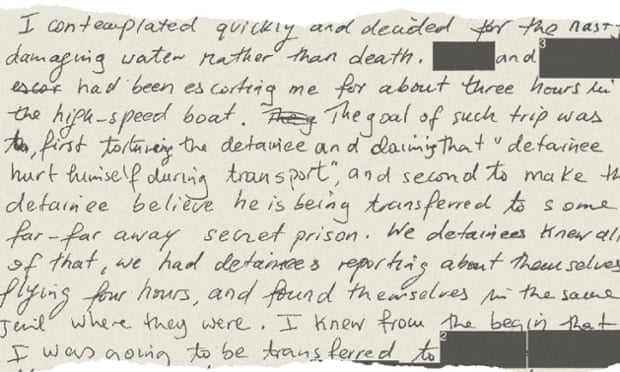 I contemplated quickly and decided for the nast-
damaging water rather than death. and 3
escor had been escorting me for about three hours in
the high-speed boat. They The goal of such trip was
to, first torturing the detainee and claiming that "detainee
hurt himself during transport", and second to make th
detainee believe he is being transferred to some
far-far away secret prison. We detainees knew all
of that, we had detainees reporting about themselves
flying four hours, and found themselves in the same
jail where they were. I knew from the begin that
I was going to be transferred to 2